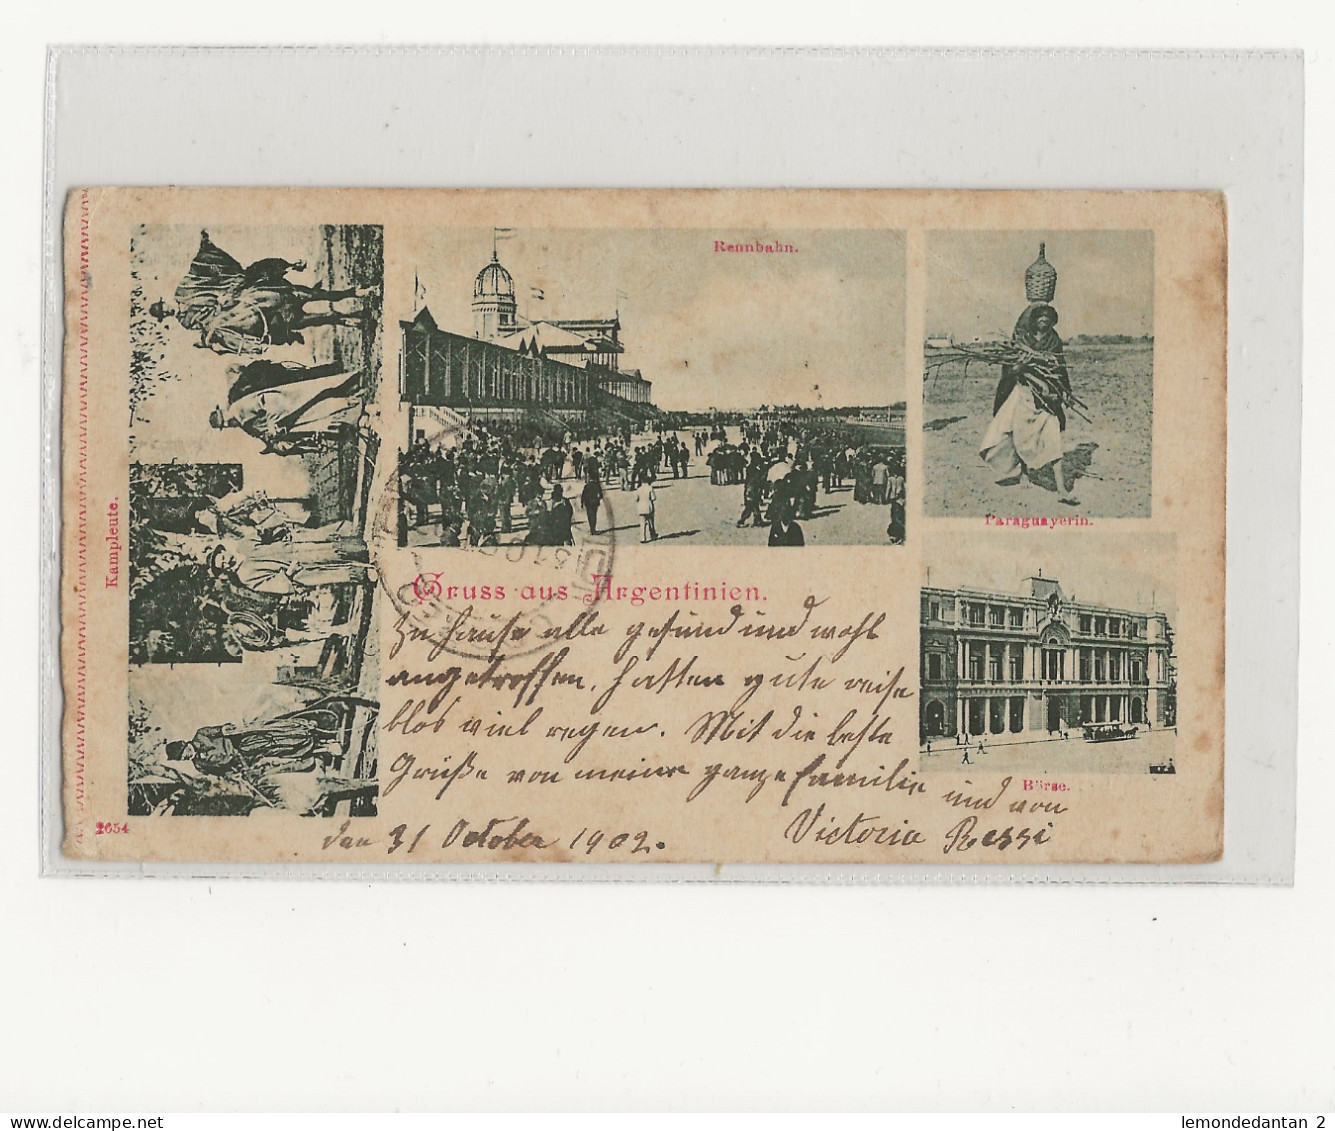 Rennbahn.
Kampleute.
Paraguayerin.
Gruss aus Argentinien.
zu hause alle gesund und wohl
angetroffen, hatten gute reise
blos viel regen. Mit die beste
Grüße von meine ganze familie und von
Victoria Rossi
den 31 October 1902.
Börse.
2654
lemondedantan 2